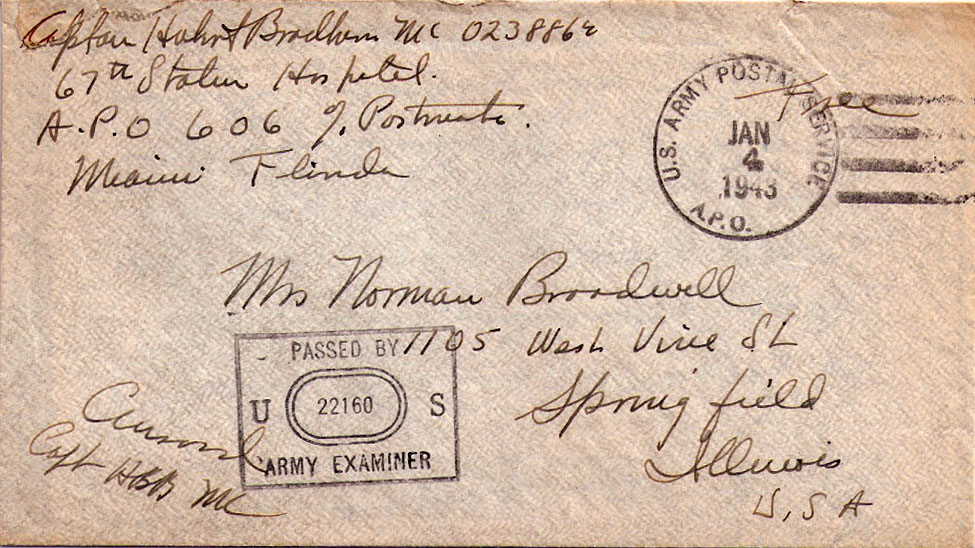 Captain Hahn F Bradham MC 0238862
67th Station Hospital.
A.P.O 606 % Postmaster.
Miami Florida
Free
U.S. ARMY POSTAL SERVICE
JAN
4
1943
A.P.O.
Mrs Norman Broadwell
1105 West Vine St
Springfield
Illinois
U.S.A
PASSED BY
U 22160 S
ARMY EXAMINER
Censored
Capt HBB MC